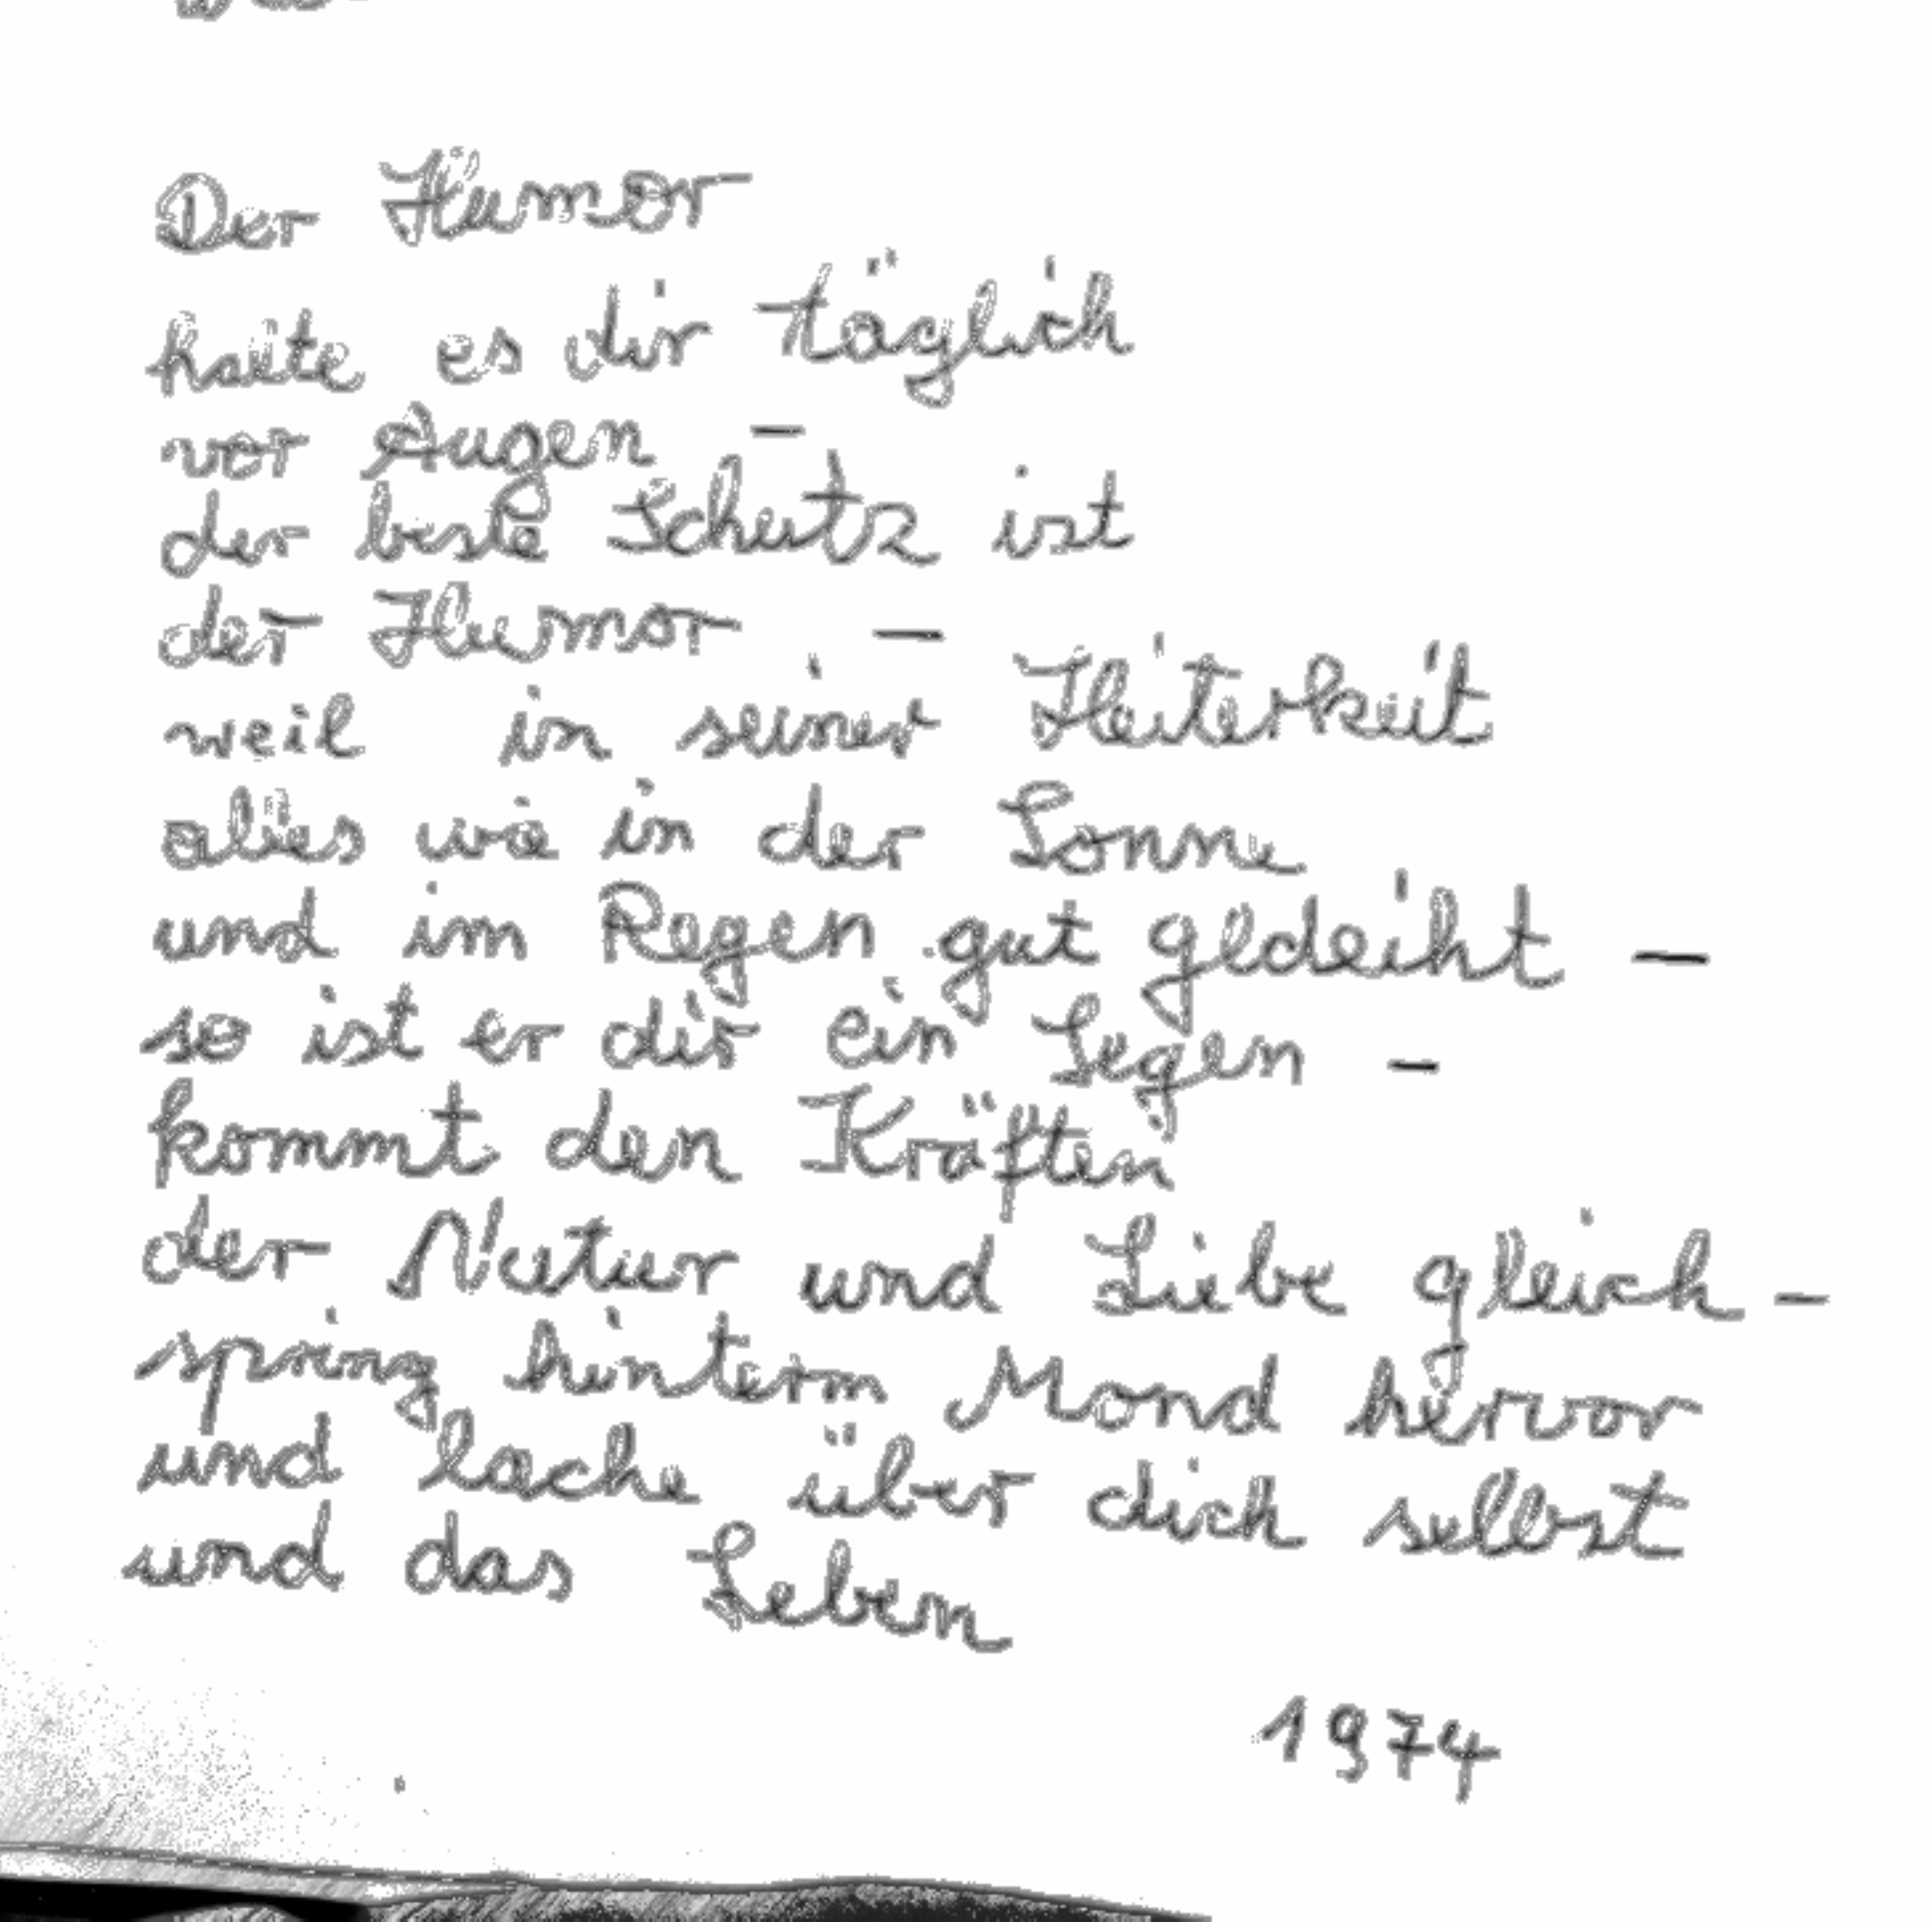 Der Humor
halte es dir täglich
vor Augen –
der beste Schutz ist
der Humor –
weil in seiner Heiterkeit
alles wie in der Sonne
und im Regen gut gedeiht –
so ist er dir ein Segen –
kommt den Kräften
der Natur und Liebe gleich –
spring hinterm Mond hervor
und lache über dich selbst
und das Leben
1974